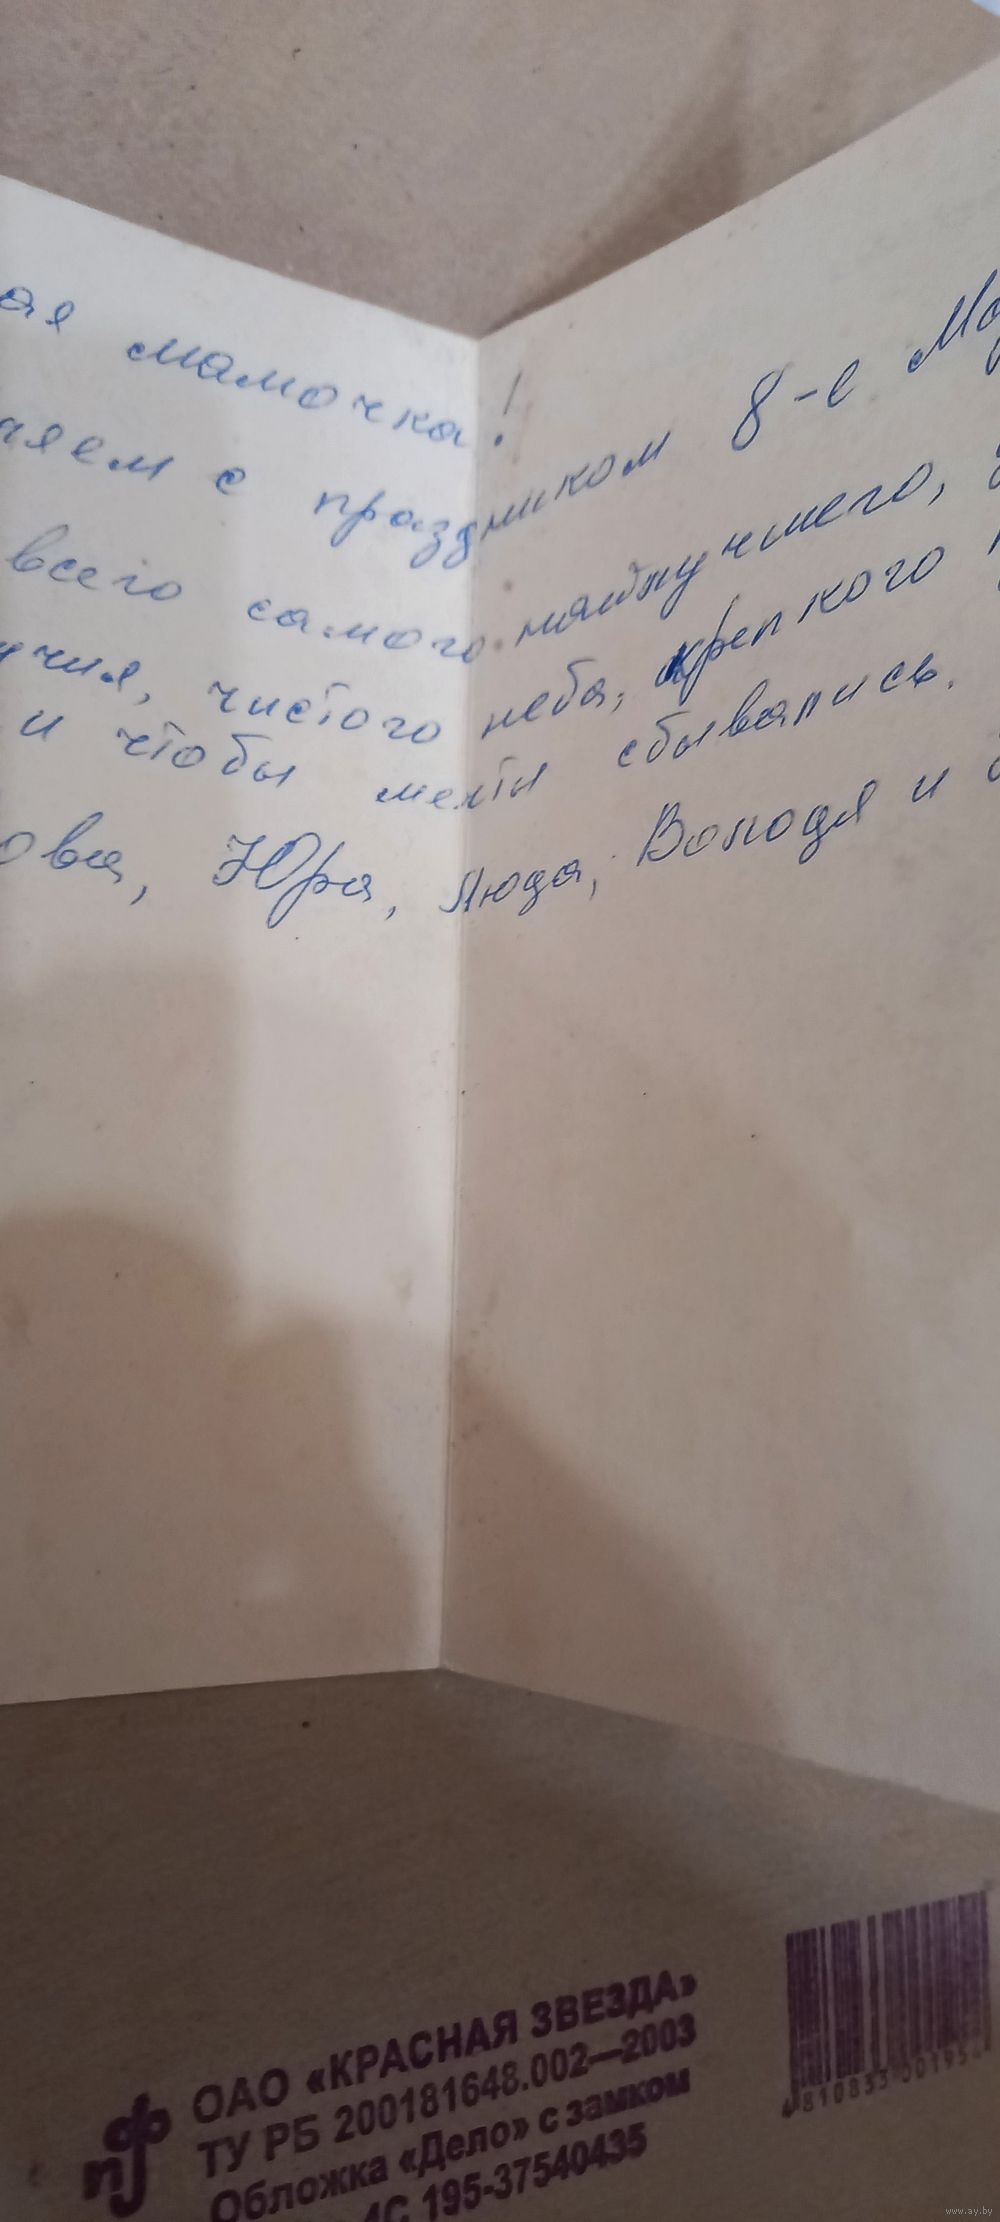 ая мамочка!
яем с праздником 8-е Ма
всего самого найлучшего,
учия, чистого неба, крепкого
и чтобы мечты сбывались.
ова, Юра, Люда, Володя и
ОАО «КРАСНАЯ ЗВЕЗДА»
ТУ РБ 200181648.002—2003
Обложка «Дело» с замком
4С 195-37540435
www.ay.by